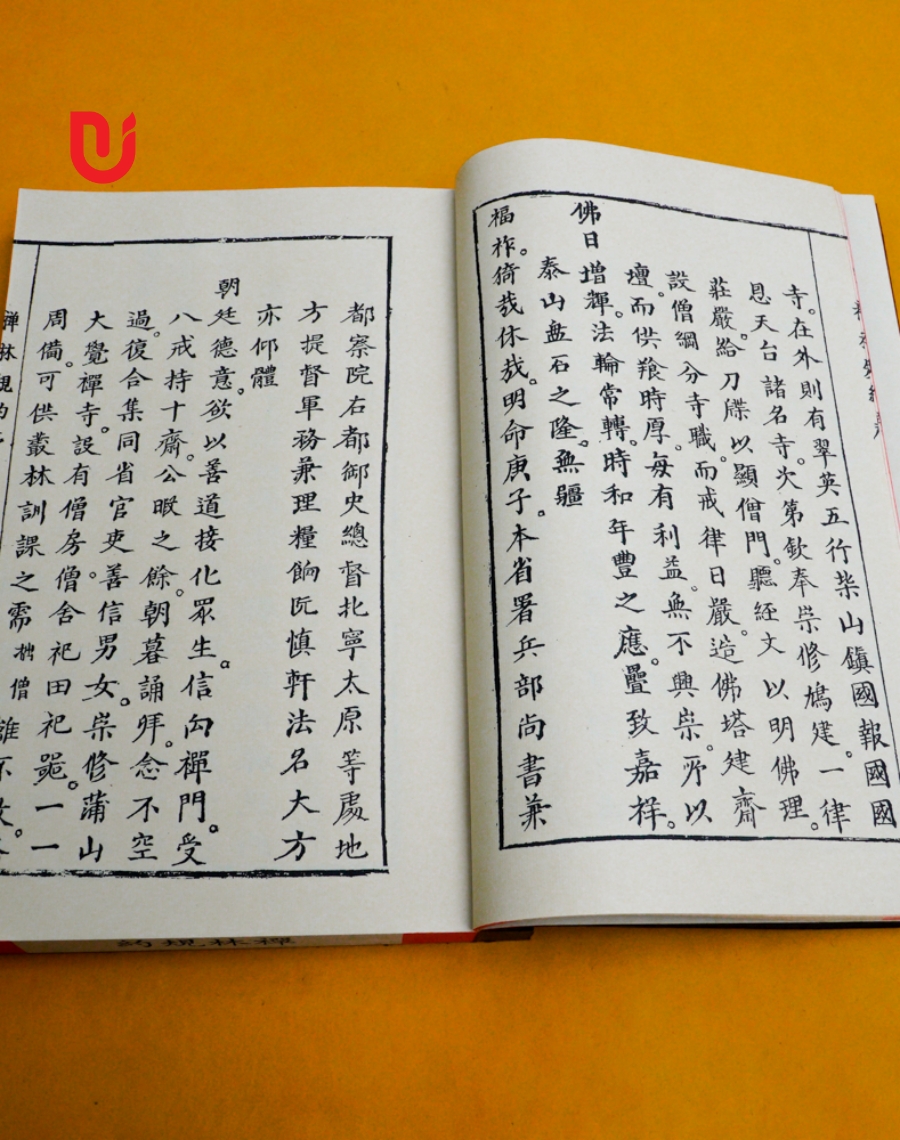 寺。在外則有翠英五行柴山鎮國報國國
恩天台諸名寺。次第欽奉崇修鳩建。一律
莊嚴。給刀牒以顯僧門。聽經文以明佛理。
設僧綱分寺職。而戒律日嚴。造佛塔建齋
壇。而供飱時厚。每有利益。無不興崇。所以
佛日增輝。法輪常轉。時和年豐之應。疊致嘉祥。
泰山盘石之隆。無疆
福祚。猗哉休哉。明命庚子。本省署兵部尚書兼
都察院右都御史總督北寧太原等處地
方提督軍務兼理糧餉阮慎軒法名大方
亦仰體
朝廷德意。欲以善道接化眾生。信向禪門。受
八戒持十齋。公暇之餘。朝暮誦拜。念不空
過。復合集同省官吏善信男女。崇修蒲山
大覺禪寺。設有僧房。僧舍祀田祀噐。一一
周備。可供叢林訓課之需拙僧
禅林規約
禪林規約